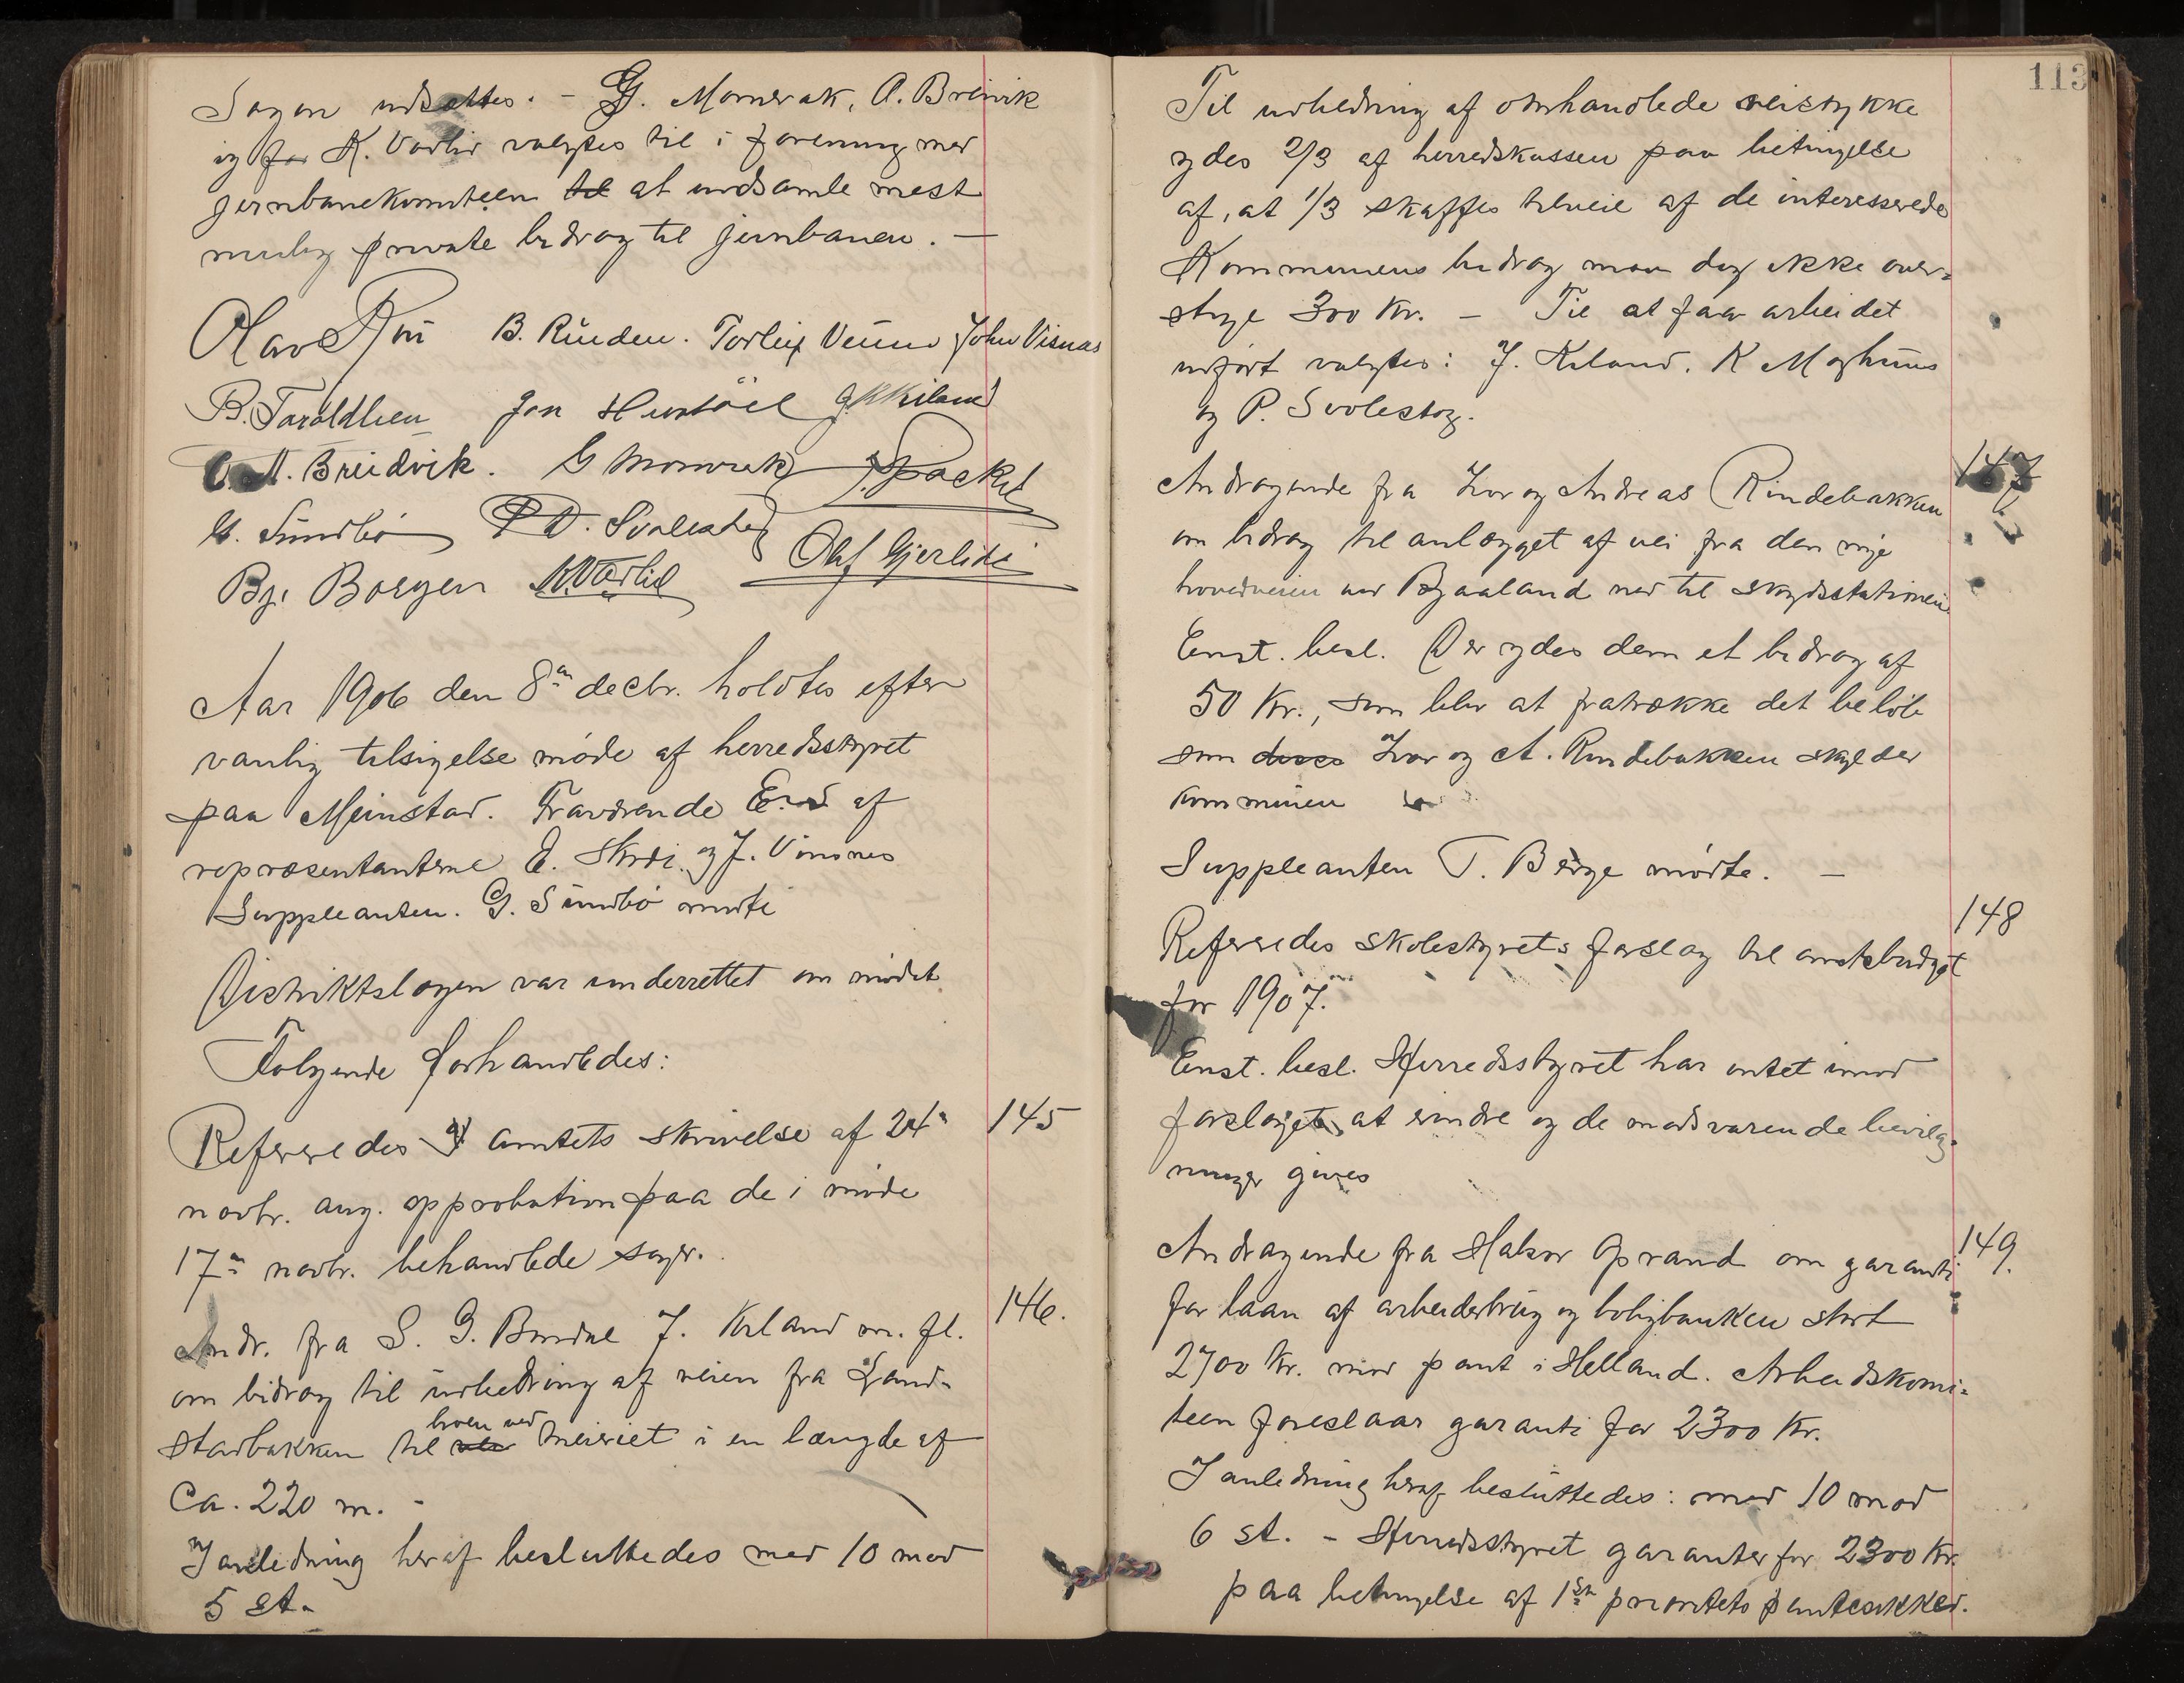 Sagen udsættes. – G. Momrak, A. Breivik
og for K. Vaaлid valgtes til i forening med
jernbanekomiteen til at indsamle mest
mulig private bidrag til jernbanen. –
Olav Roi B. Rinden. Torleif Venno John Visnæs
B. Taraldlien Jon Hustöel J. K. Kiland
A. Breidvik. G Momrak
G. Sundbö P. D. Svalestog Olaf Gjerlidi
Bj. Borgen K. Vaalid
Aar 1906 den 8de decbr. holdtes efter
vanlig tilsigelse møde af herredsstyret
paa Meinstad. Fraværende af
repræsentanterne og J. Visnæs
Suppleanten. G. Sundbö mødte
Distriktslægen var underrettet om mødet.
Følgende forhandledes:
Refereredes amtets skrivelse af 24de 145
novbr. ang. approbation paa de i møde
17de novbr. behandlede sager.
Andr. fra S. G. J. Kiland m. fl. 146.
om bidrag til udbedring af veien fra Land-
stadbakken til
hven ved
meieriet i en længde af
ca. 220 m. –
I anledning heraf besluttedes med 10 mod
5 st.
113
Til udbedring af omhandlede veistykke
ydes 2/3 af herredskassen paa betingelse
af, at 1/3 skaffes tilveie af de interesserede
Kommunens bidrag maa dog ikke over-
stige 300 Kr. – Til at faa arbeidet
udført valgtes: J. Kiland. K Moghuus
og P. Svolestog.
147
Andragende fra Ivar og Andreas Rindebakken
om bidrag til anlægget af vei fra den nye
hovedveien ved Bjaaland ned til skydsstationen
Enst. besl. Der ydes dem et bidrag af
50 Kr., som blir at fratrække det beløb
som Ivar og A. Rindebakken skylder
kommunen
Suppleanten T. Berge mødte. –
148
Refereredes skolestyrets forslag til amtsbudget
for 1907.
Enst. besl. Herredsstyret har intet imod
forslaget at erindre og de modsvarende bevilg-
ninger gives
Andragende fra Halvor Oprand om garanti 149.
for laan af arbeiderbrug og boligbanken stort
2700 Kr. mod pant i Helland. Arbeidskomi-
teen foreslaar garanti for 2300 Kr.
I anledning heraf besluttedes: med 10 mod
6 st. – Herredsstyret garanter for 2300 Kr.
paa betingelse af 1ste prioritets pantesikked.